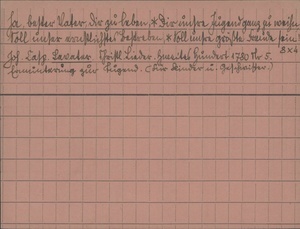 Ja, bester Vater, dir zu leben, * Dir unsre Jugend ganz zu weihn
Soll unser ernstlichstes Bestreben, * Soll unsre größte Freude sein.
8 x 4
Joh. Casp. Lavater. Christl. Lieder. Zweites Hundert 1780 Nr 5.
Ermunterung zur Tugend. (Für Kinder u. Geschwister.)